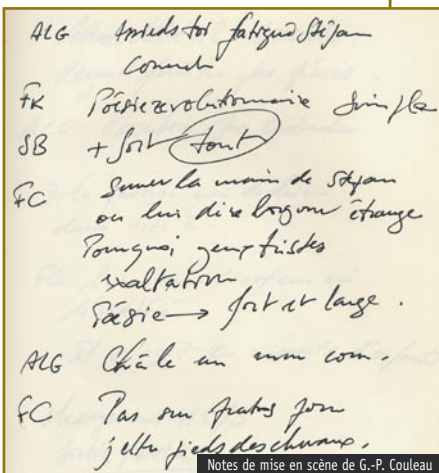 ALG Assieds toi fatigué Stépan
FK Poésie révolutionnaire simple
SB + fort tout
FC Serrer la main de Stepan
ou lui dire bonjour étrange
Pourquoi yeux tristes
exaltation
Poésie → fort et large.
ALG Châle un
FC Pas sur
pieds des chevaux.
Notes de mise en scène de G.-P. Couleau